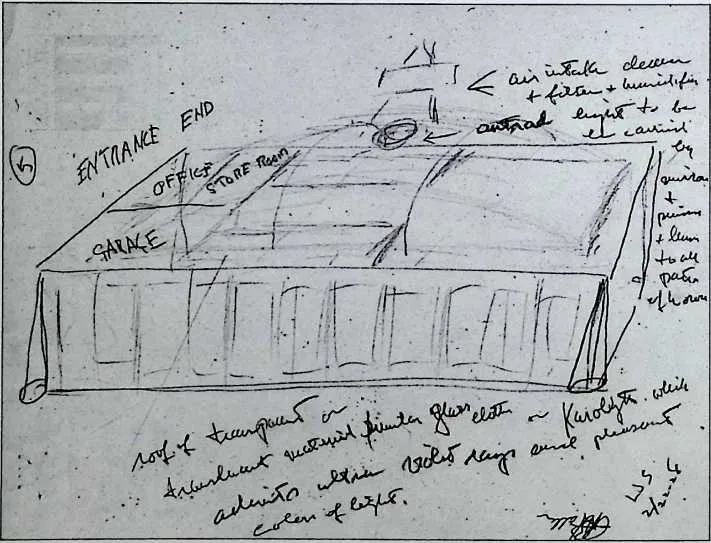 5
ENTRANCE END
OFFICE
STORE ROOM
GARAGE
air intake cleaner
+ filter + humidifier
central light to be
carried
by
+
+ lens
to all
parts
of house
roof of transparent or
translucent material glass cloth or which
admits ultra violet rays and pleasant
color of light.